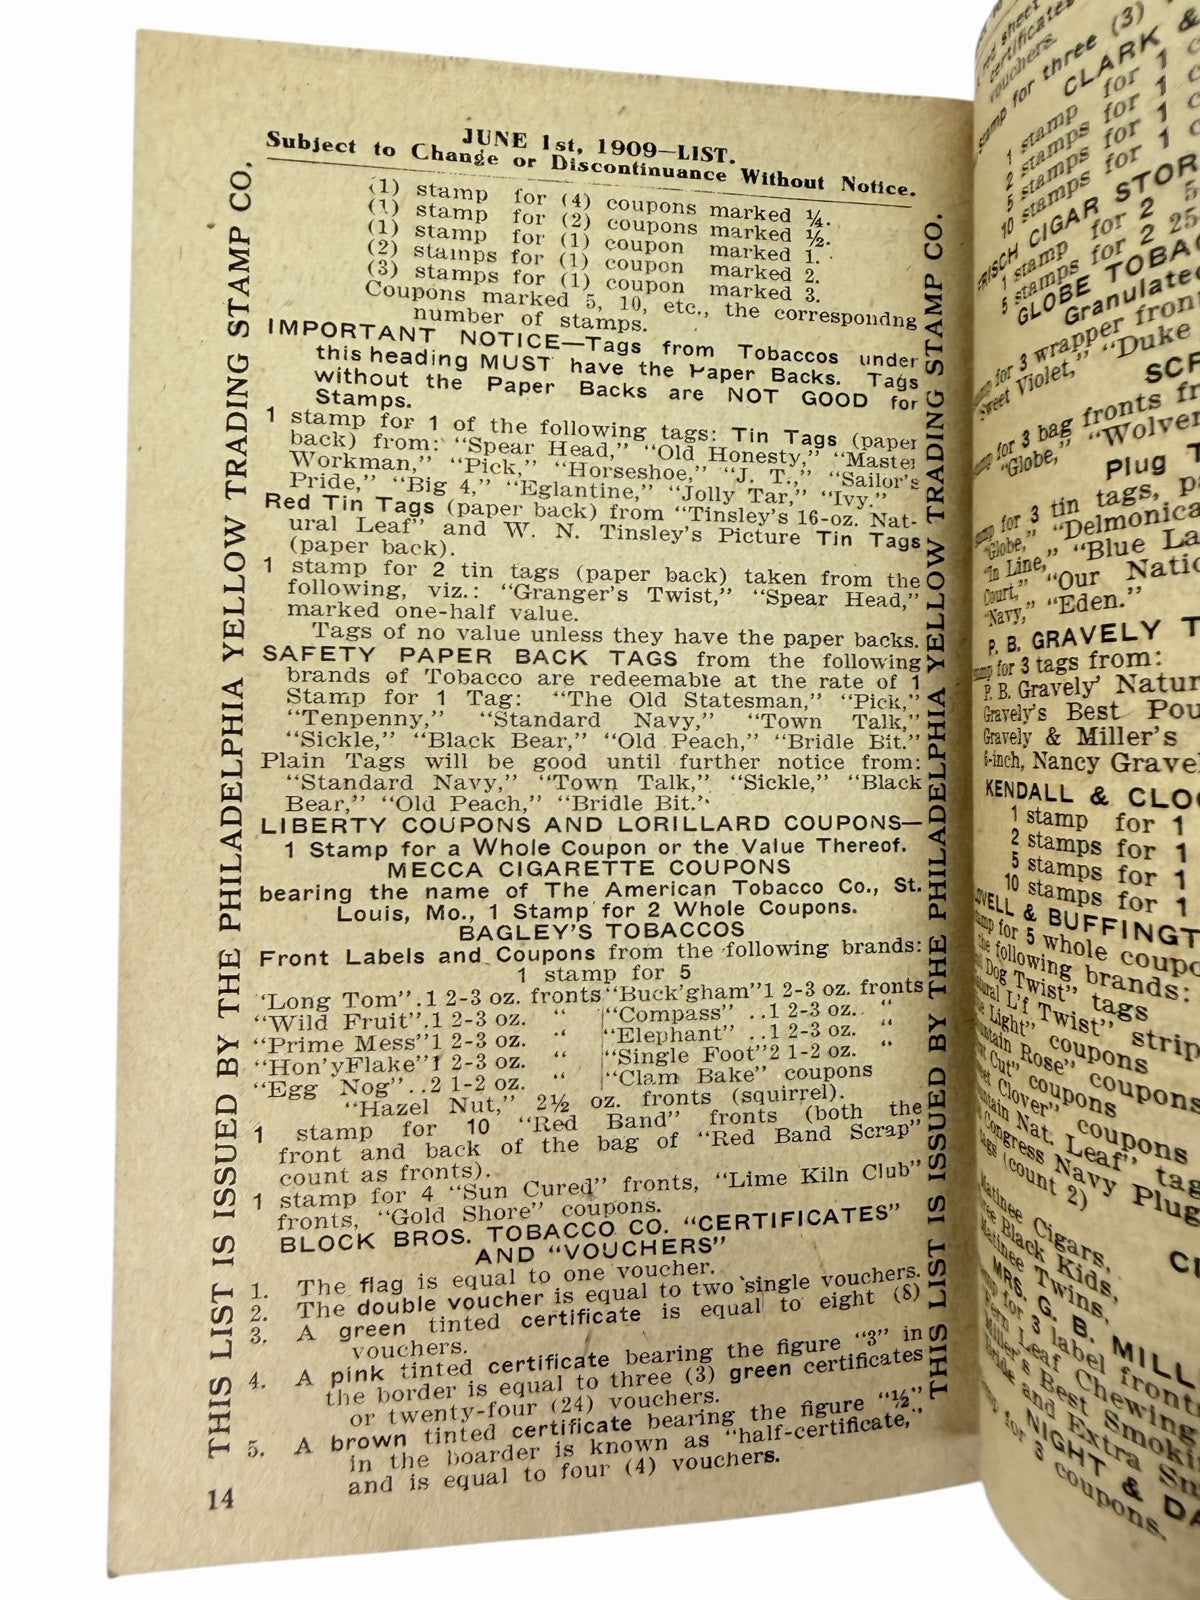 THIS LIST IS ISSUED BY THE PHILADELPHIA YELLOW TRADING STAMP CO.
JUNE 1st, 1909—LIST.
Subject to Change or Discontinuance Without Notice.
(1) stamp for (4) coupons marked ¼.
(1) stamp for (2) coupons marked ½.
(1) stamp for (1) coupon marked 1.
(2) stamps for (1) coupon marked 2.
(3) stamps for (1) coupon marked 3.
Coupons marked 5, 10, etc., the correspondng
number of stamps.
IMPORTANT NOTICE—Tags from Tobaccos under
this heading MUST have the Paper Backs. Tags
without the Paper Backs are NOT GOOD for
Stamps.
1 stamp for 1 of the following tags: Tin Tags (paper
back) from: "Spear Head," "Old Honesty," "Master
Workman," "Pick," "Horseshoe," "J. T.," "Sailor's
Pride," "Big 4," "Eglantine," "Jolly Tar," "Ivy."
Red Tin Tags (paper back) from "Tinsley's 16-oz. Nat-
ural Leaf" and W. N. Tinsley's Picture Tin Tags
(paper back).
1 stamp for 2 tin tags (paper back) taken from the
following, viz.: "Granger's Twist," "Spear Head,"
marked one-half value.
Tags of no value unless they have the paper backs.
SAFETY PAPER BACK TAGS from the following
brands of Tobacco are redeemable at the rate of 1
Stamp for 1 Tag: "The Old Statesman," "Pick,"
"Tenpenny," "Standard Navy," "Town Talk,"
"Sickle," "Black Bear," "Old Peach," "Bridle Bit."
Plain Tags will be good until further notice from:
"Standard Navy," "Town Talk," "Sickle," "Black
Bear," "Old Peach," "Bridle Bit."
LIBERTY COUPONS AND LORILLARD COUPONS—
1 Stamp for a Whole Coupon or the Value Thereof.
MECCA CIGARETTE COUPONS
bearing the name of The American Tobacco Co., St.
Louis, Mo., 1 Stamp for 2 Whole Coupons.
BAGLEY'S TOBACCOS
Front Labels and Coupons from the following brands:
1 stamp for 5
"Long Tom".1 2-3 oz. fronts "Buck'gham"1 2-3 oz. fronts
"Wild Fruit".1 2-3 oz. " "Compass" ..1 2-3 oz. "
"Prime Mess"1 2-3 oz. " "Elephant" ..1 2-3 oz. "
"Hon'yFlake"1 2-3 oz. " "Single Foot"2 1-2 oz. "
"Egg Nog"..2 1-2 oz. " "Clam Bake" coupons
"Hazel Nut," 2½ oz. fronts (squirrel).
1 stamp for 10 "Red Band" fronts (both the
front and back of the bag of "Red Band Scrap"
count as fronts).
1 stamp for 4 "Sun Cured" fronts, "Lime Kiln Club"
fronts, "Gold Shore" coupons.
BLOCK BROS. TOBACCO CO. "CERTIFICATES"
AND "VOUCHERS"
1. The flag is equal to one voucher.
2. The double voucher is equal to two single vouchers.
3. A green tinted certificate is equal to eight (8)
vouchers.
4. A pink tinted certificate bearing the figure "3" in
the border is equal to three (3) green certificates
or twenty-four (24) vouchers.
5. A brown tinted certificate bearing the figure "½"
in the boarder is known as "half-certificate,"
and is equal to four (4) vouchers.
THIS LIST IS ISSUED BY THE PHILADELPHIA YELLOW TRADING STAMP CO.
14
certificates
vouchers.
stamp for three (3)
CLARK &
1 stamp for 1
2 stamps for 1
5 stamps for 1
10 stamps for 1
FRISCH CIGAR STOR
1 stamp for 2 5
5 stamps for 2 25
GLOBE TOBAC
Granulated
for 3 wrapper fron
Sweet Violet," "Duke
SCR
for 3 bag fronts fr
"Globe," "Wolver
Plug T
for 3 tin tags, pa
"Globe," "Delmonica
"In Line," "Blue La
Court," "Our Natio
"Navy," "Eden."
P. B. GRAVELY T
for 3 tags from:
P. B. Gravely' Natur
Gravely's Best Pou
Gravely & Miller's
6-inch, Nancy Gravel
KENDALL & CLOC
1 stamp for 1
2 stamps for 1
5 stamps for 1
10 stamps for 1
LOVELL & BUFFINGT
for 5 whole coupo
the following brands:
Dog Twist" tags
L'f Twist" strip
Light" coupons
Rose" coupons
Cut" coupons
Clover" coupons
Nat. Leaf" tag
Congress Navy Plug
tags (count 2)
CI
Matinee Cigars,
Black Kids,
Matinee Twins,
MRS. G. B. MILL
for 3 label front
Fern Leaf Chewing
Miller's Best Smokin
Bride and Extra Sm
NIGHT & DA
for 3 coupons.